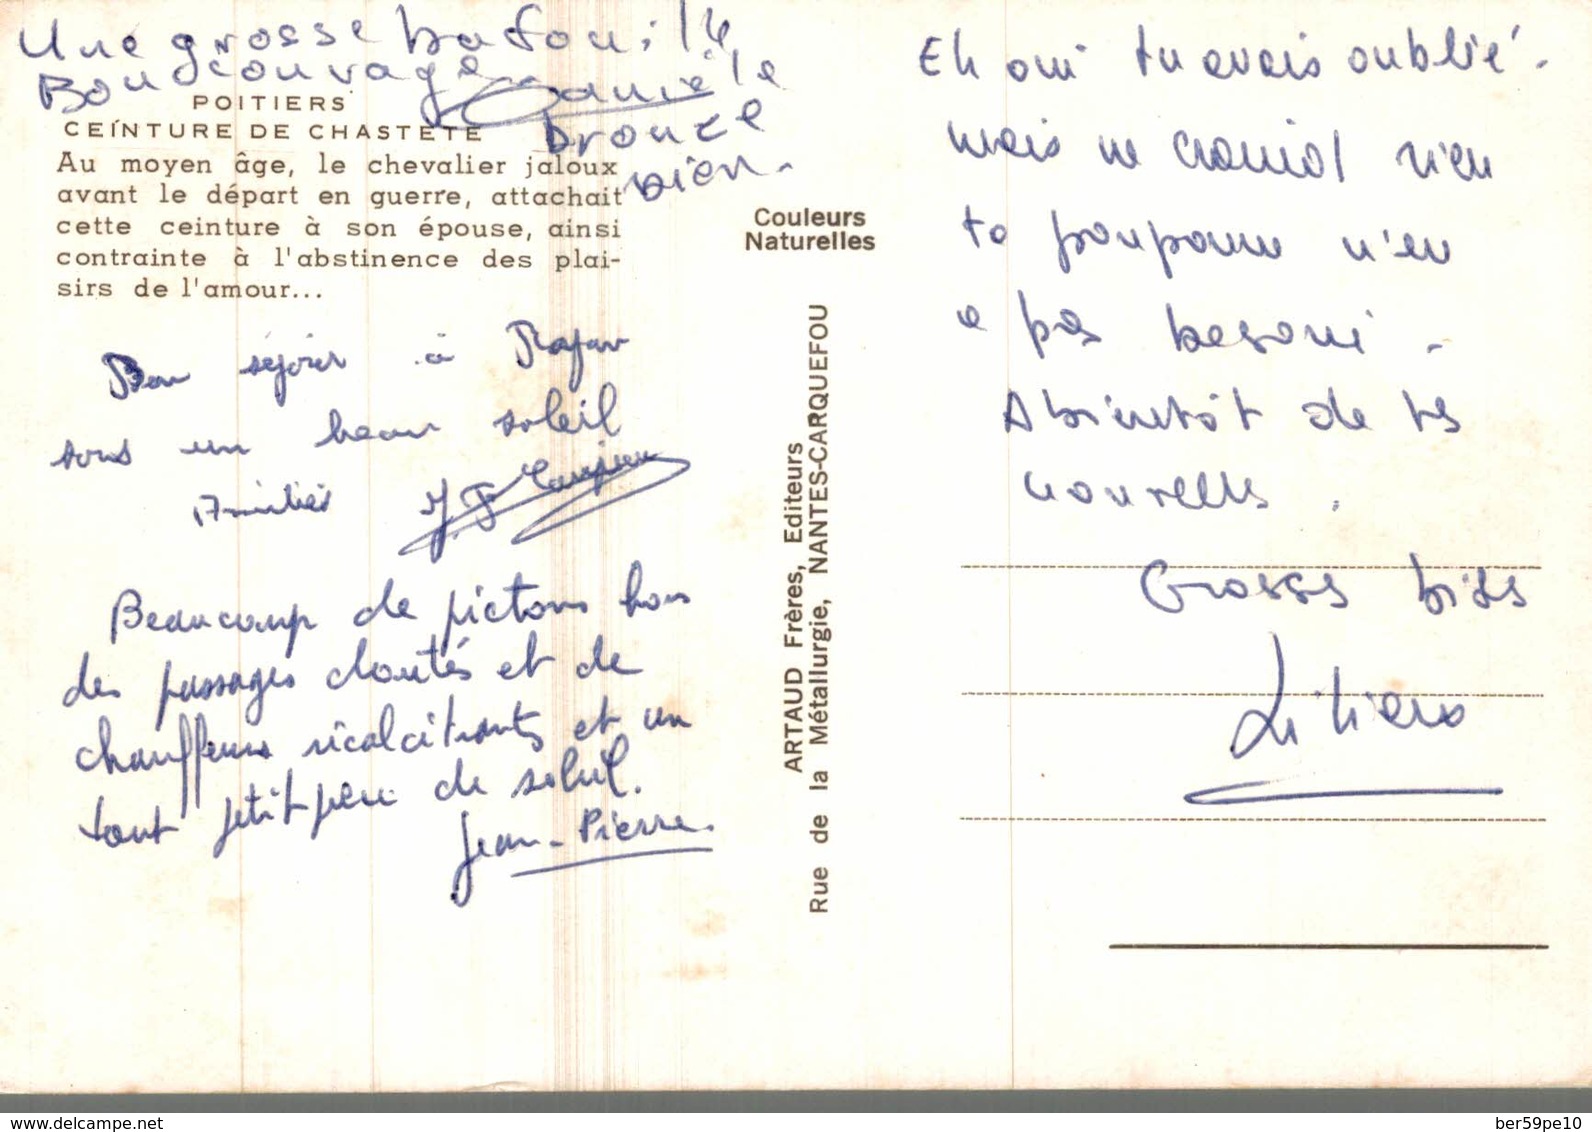 Une grosse bafouille
Bon courage Danièle
bronze
bien.
POITIERS
CEINTURE DE CHASTETE
Au moyen âge, le chevalier jaloux
avant le départ en guerre, attachait
cette ceinture à son épouse, ainsi
contrainte à l'abstinence des plai-
sirs de l'amour...
Bon séjour à
sous un beau soleil
Amitiés J.F.
Beaucoup de pietons hors
des passages cloutés et de
chauffeurs récalcitrants et un
tout petit peu de soleil.
Jean-Pierre.
Couleurs
Naturelles
ARTAUD Frères, Editeurs
Rue de la Métallurgie, NANTES-CARQUEFOU
Eh oui tu avais oublié.
mais ne craind rien
ta n'en
a pas besoin.
A bientôt de tes
nouvelles.
Grosses bises
www.delcampe.net
ber59pe10